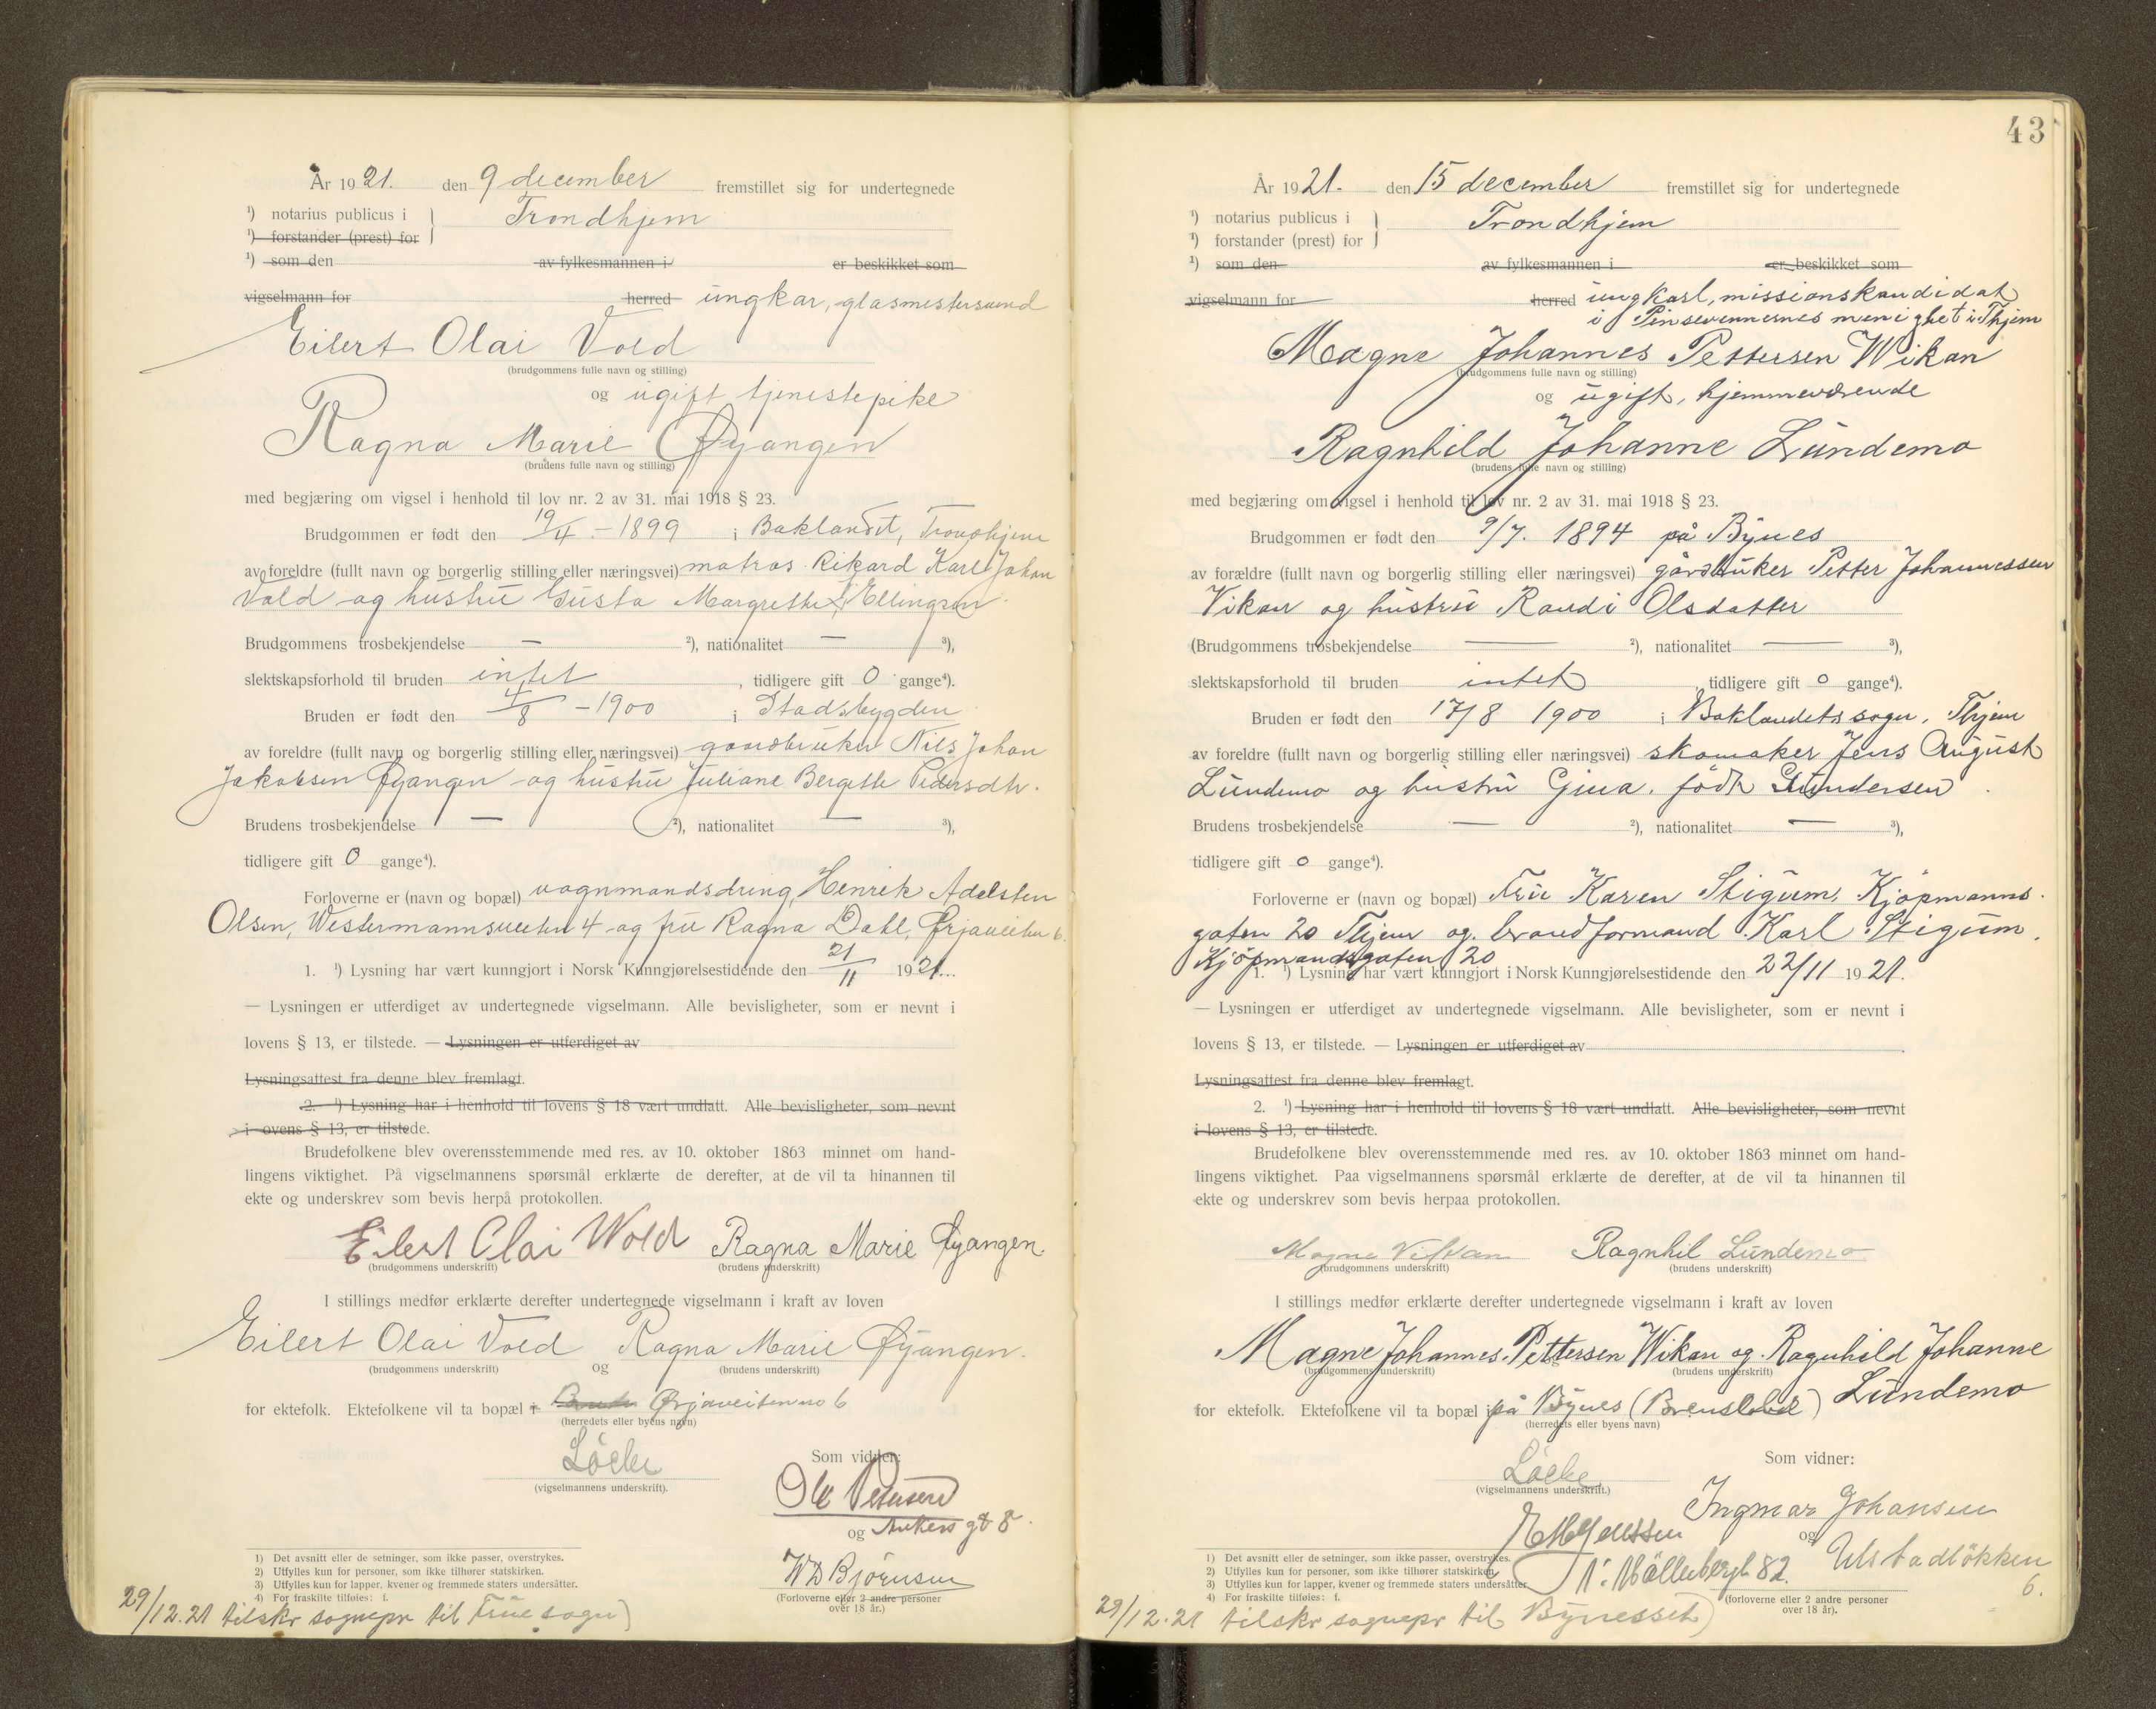 År 1921. den 9 december fremstillet sig for undertegnede
¹) notarius publicus i } Trondhjem
¹) forstander (prest) for
¹) som den av fylkesmannen i er beskikket som
vigselmann for herred ungkar, glasmestersvend
Eilert Olai Vold
(brudgommens fulle navn og stilling)
og ugift tjenestepike
Ragna Marie Øyangen
(brudens fulle navn og stilling)
med begjæring om vigsel i henhold til lov nr. 2 av 31. mai 1918 § 23.
Brudgommen er født den 19/4 - 1899 i Baklandet, Trondhjem
av foreldre (fullt navn og borgerlig stilling eller næringsvei) matros Rikard Karl Johan
Vold og hustru Gusta Margrethe Ellingsen
Brudgommens trosbekjendelse — ²), nationalitet — ³),
slektskapsforhold til bruden intet, tidligere gift 0 gange⁴).
Bruden er født den 4/8 - 1900 i Stadsbygden
av foreldre (fullt navn og borgerlig stilling eller næringsvei) gaardbruker Nils Johan
Jakobsen Øyangen og hustru Juliane Bergitte Pedersdtr.
Brudens trosbekjendelse — ²), nationalitet — ³),
tidligere gift 0 gange⁴).
Forloverne er (navn og bopæl) vognmandsdreng Henrik Adelsten
Olsen, Westermannsveiten 4 og fru Ragna Dahl, Ørjaveiten 6.
1. ¹) Lysning har vært kunngjort i Norsk Kunngjørelsestidende den 21/11 1921.
— Lysningen er utferdiget av undertegnede vigselmann. Alle bevisligheter, som er nevnt i
lovens § 13, er tilstede. — Lysningen er utferdiget av
Lysningsattest fra denne blev fremlagt.
2. ¹) Lysning har i henhold til lovens § 18 vært undlatt. Alle bevisligheter, som nevnt
i lovens § 13, er tilstede.
Brudefolkene blev overensstemmende med res. av 10. oktober 1863 minnet om hand-
lingens viktighet. På vigselmannens spørsmål erklærte de derefter, at de vil ta hinannen til
ekte og underskrev som bevis herpå protokollen.
Eilert Olai Wold Ragna Marie Øyangen.
(brudgommens underskrift) (brudens underskrift)
I stillings medfør erklærte derefter undertegnede vigselmann i kraft av loven
Eilert Olai Vold Ragna Marie Øyangen.
(brudgommens underskrift) og (brudens underskrift)
for ektefolk. Ektefolkene vil ta bopæl i Ørjaveiten no 6
(herredets eller byens navn)
Løcke Som vidner:
(vigselmannens underskrift).
Ole Petersen
og Ankers gt 8.
W D Bjørnsen
(Forloverne eller 2 andre personer
over 18 år.)
1) Det avsnitt eller de setninger, som ikke passer, overstrykes.
2) Utfylles kun for personer, som ikke tilhører statskirken.
3) Utfylles kun for lapper, kvener og fremmede staters undersåtter.
4) For fraskilte tilføies: f.
29/12.21 tilskr sognepr til Frue sogn)
43
År 1921. den 15 december fremstillet sig for undertegnede
¹) notarius publicus i } Trondhjem
¹) forstander (prest) for
¹) som den av fylkesmannen i er beskikket som
vigselmann for herred ungkarl, missionskandidat
i Pinsevennernes menighet i Thjem
Magne Johannes Pettersen Wikan
(brudgommens fulle navn og stilling)
og ugift, hjemmeværende
Ragnhild Johanne Lundemo
(brudens fulle navn og stilling)
med begjæring om vigsel i henhold til lov nr. 2 av 31. mai 1918 § 23.
Brudgommen er født den 9/7. 1894 på Bynes
av forældre (fullt navn og borgerlig stilling eller næringsvei) gårdbruker Petter Johannessen
Vikan og hustru Randi Olsdatter
(Brudgommens trosbekjendelse — ²), nationalitet — ³),
slektskapsforhold til bruden intet tidligere gift 0 gange⁴).
Bruden er født den 17/8 1900 i Baklandets sogn, Thjem
av foreldre (fullt navn og borgerlig stilling eller næringsvei) skomaker Jens August
Lundemo og hustru Gina, født Gundersen
Brudens trosbekjendelse — ²), nationalitet — ³),
tidligere gift 0 gange⁴).
Forloverne er (navn og bopæl) Fru Karen Stigum, Kjøpmanns-
gaten 20 Thjem og brandformand Karl Stigum,
Kjøpmandsgaten 20
1. ¹) Lysning har vært kunngjort i Norsk Kunngjørelsestidende den 22/11 1921.
— Lysningen er utferdiget av undertegnede vigselmann. Alle bevisligheter, som er nevnt i
lovens § 13, er tilstede. — Lysningen er utferdiget av
Lysningsattest fra denne blev fremlagt.
2. ¹) Lysning har i henhold til lovens § 18 vært undlatt. Alle bevisligheter, som nevnt
i lovens § 13, er tilstede.
Brudefolkene blev overensstemmende med res. av 10. oktober 1863 minnet om hand-
lingens viktighet. Paa vigselmannens spørsmål erklærte de derefter, at de vil ta hinannen til
ekte og underskrev som bevis herpaa protokollen.
Magne Vikan Ragnhil Lundemo
(brudgommens underskrift) (brudens underskrift)
I stillings medfør erklærte derefter undertegnede vigselmann i kraft av loven
Magne Johannes Pettersen Wikan og Ragnhild Johanne
(brudgommens underskrift) (brudens underskrift)
Lundemo
for ektefolk. Ektefolkene vil ta bopæl i på Bynes
(herredets eller byens navn)
Løcke Som vidner:
(vigselmannens underskrift.)
Ingmar Johansen
og Ulstadløkken
6.
N. Møllenbergt 82.
(forloverne eller 2 andre personer
over 18 år).
1) Det avsnitt eller de setninger, som ikke passer, overstrykes.
2) Utfylles kun for personer, som ikke tilhører statskirken.
3) Utfylles kun for lapper, kvener og fremmede staters undersåtter.
4) For fraskilte tilføies: f.
29/12.21 tilskr sognepr til Bynesset)